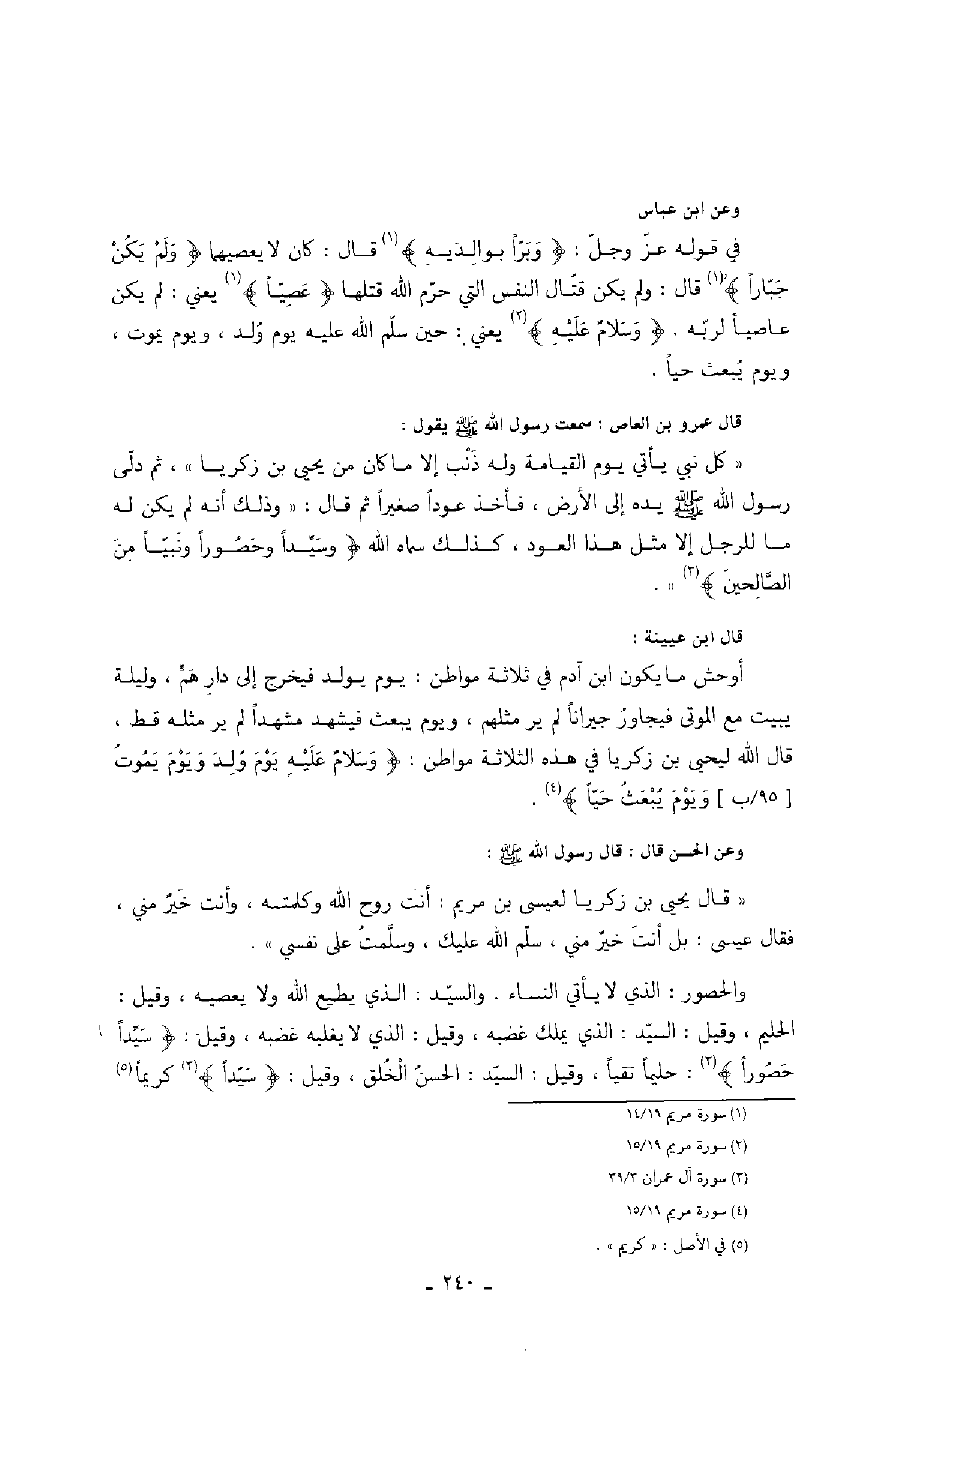 وعن ابن عباس
في قوله عزّ وجلّ : ﴿ وَبَرّاً بوالِدَيـهِ ﴾(١) قال : كان لا يعصيها ﴿ وَلَمْ يَكُنْ
جَبّاراً ﴾(١) قال : ولم يكن قتّال النفس التي حرّم الله قتلها ﴿ عَصِيّاً ﴾(١) يعني : لم يكن
عاصياً لربّه . ﴿ وَسَلامٌ عَلَيْهِ ﴾(٢) يعني : حين سلّم الله عليه يوم وُلد ، ويوم يموت ،
ويوم يُبعث حياً .
قال عمرو بن العاص : سمعت رسول الله ﷺ يقول :
« كل نبي يأتي يوم القيامة وله ذَنْب إلا ما كان من يحيى بن زكريا » ، ثم دلّى
رسول الله ﷺ يده إلى الأرض ، فأخذ عوداً صغيراً ثم قال : « وذلك أنه لم يكن له
ما للرجل إلا مثل هذا العود ، كذلك سماه الله ﴿ وسَيِّداً وحَصُوراً ونَبِيّاً مِنَ
الصَّالحينَ ﴾(٣) » .
قال ابن عيينة :
أوحش ما يكون ابن آدم في ثلاثة مواطن : يوم يولد فيخرج إلى دارِ هَمٍّ ، وليلة
يبيت مع الموتى فيجاوز جيراناً لم ير مثلهم ، ويوم يبعث فيشهد مشهداً لم ير مثله قط ،
قال الله ليحيى بن زكريا في هذه الثلاثة مواطن : ﴿ وَسَلامٌ عَلَيْهِ يَوْمَ وُلِدَ وَيَوْمَ يَمُوتُ
[ ٩٥/ب ] وَيَوْمَ يُبْعَثُ حَيّاً ﴾(٤) .
وعن الحسن قال : قال رسول الله ﷺ :
« قال يحيى بن زكريا لعيسى بن مريم : أنت روح الله وكلمته ، وأنت خَيرٌ مني ،
فقال عيسى : بل أنتَ خيرٌ مني ، سلّم الله عليك ، وسلَّمتُ على نفسي » .
والحصور : الذي لا يأتي النساء . والسيّد : الذي يطيع الله ولا يعصيه ، وقيل :
الحليم ، وقيل : السيّد : الذي يملك غضبه ، وقيل : الذي لا يغلبه غضبه ، وقيل : ﴿ سَيِّداً
حَصُوراً ﴾(٣) : حليماً تقياً ، وقيل : السيّد : الحسنُ الْخُلق ، وقيل : ﴿ سَيّداً ﴾(٣) كريماً(٥)
(١) سورة مريم ١٤/١٩
(٢) سورة مريم ١٥/١٩
(٣) سورة آل عمران ٣٩/٣
(٤) سورة مريم ١٥/١٩
(٥) في الأصل : « كريم » .
ـ ٢٤٠ ـ